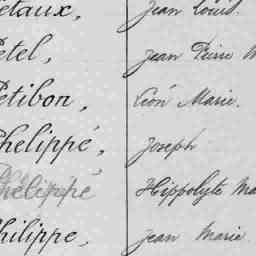 étaux, Jean Louis.
etel, Jean Pierre M
Petibon, Léon Marie.
Phelippé, Joseph
Phélippé Hippolyte Ma
Philippe, Jean Marie.